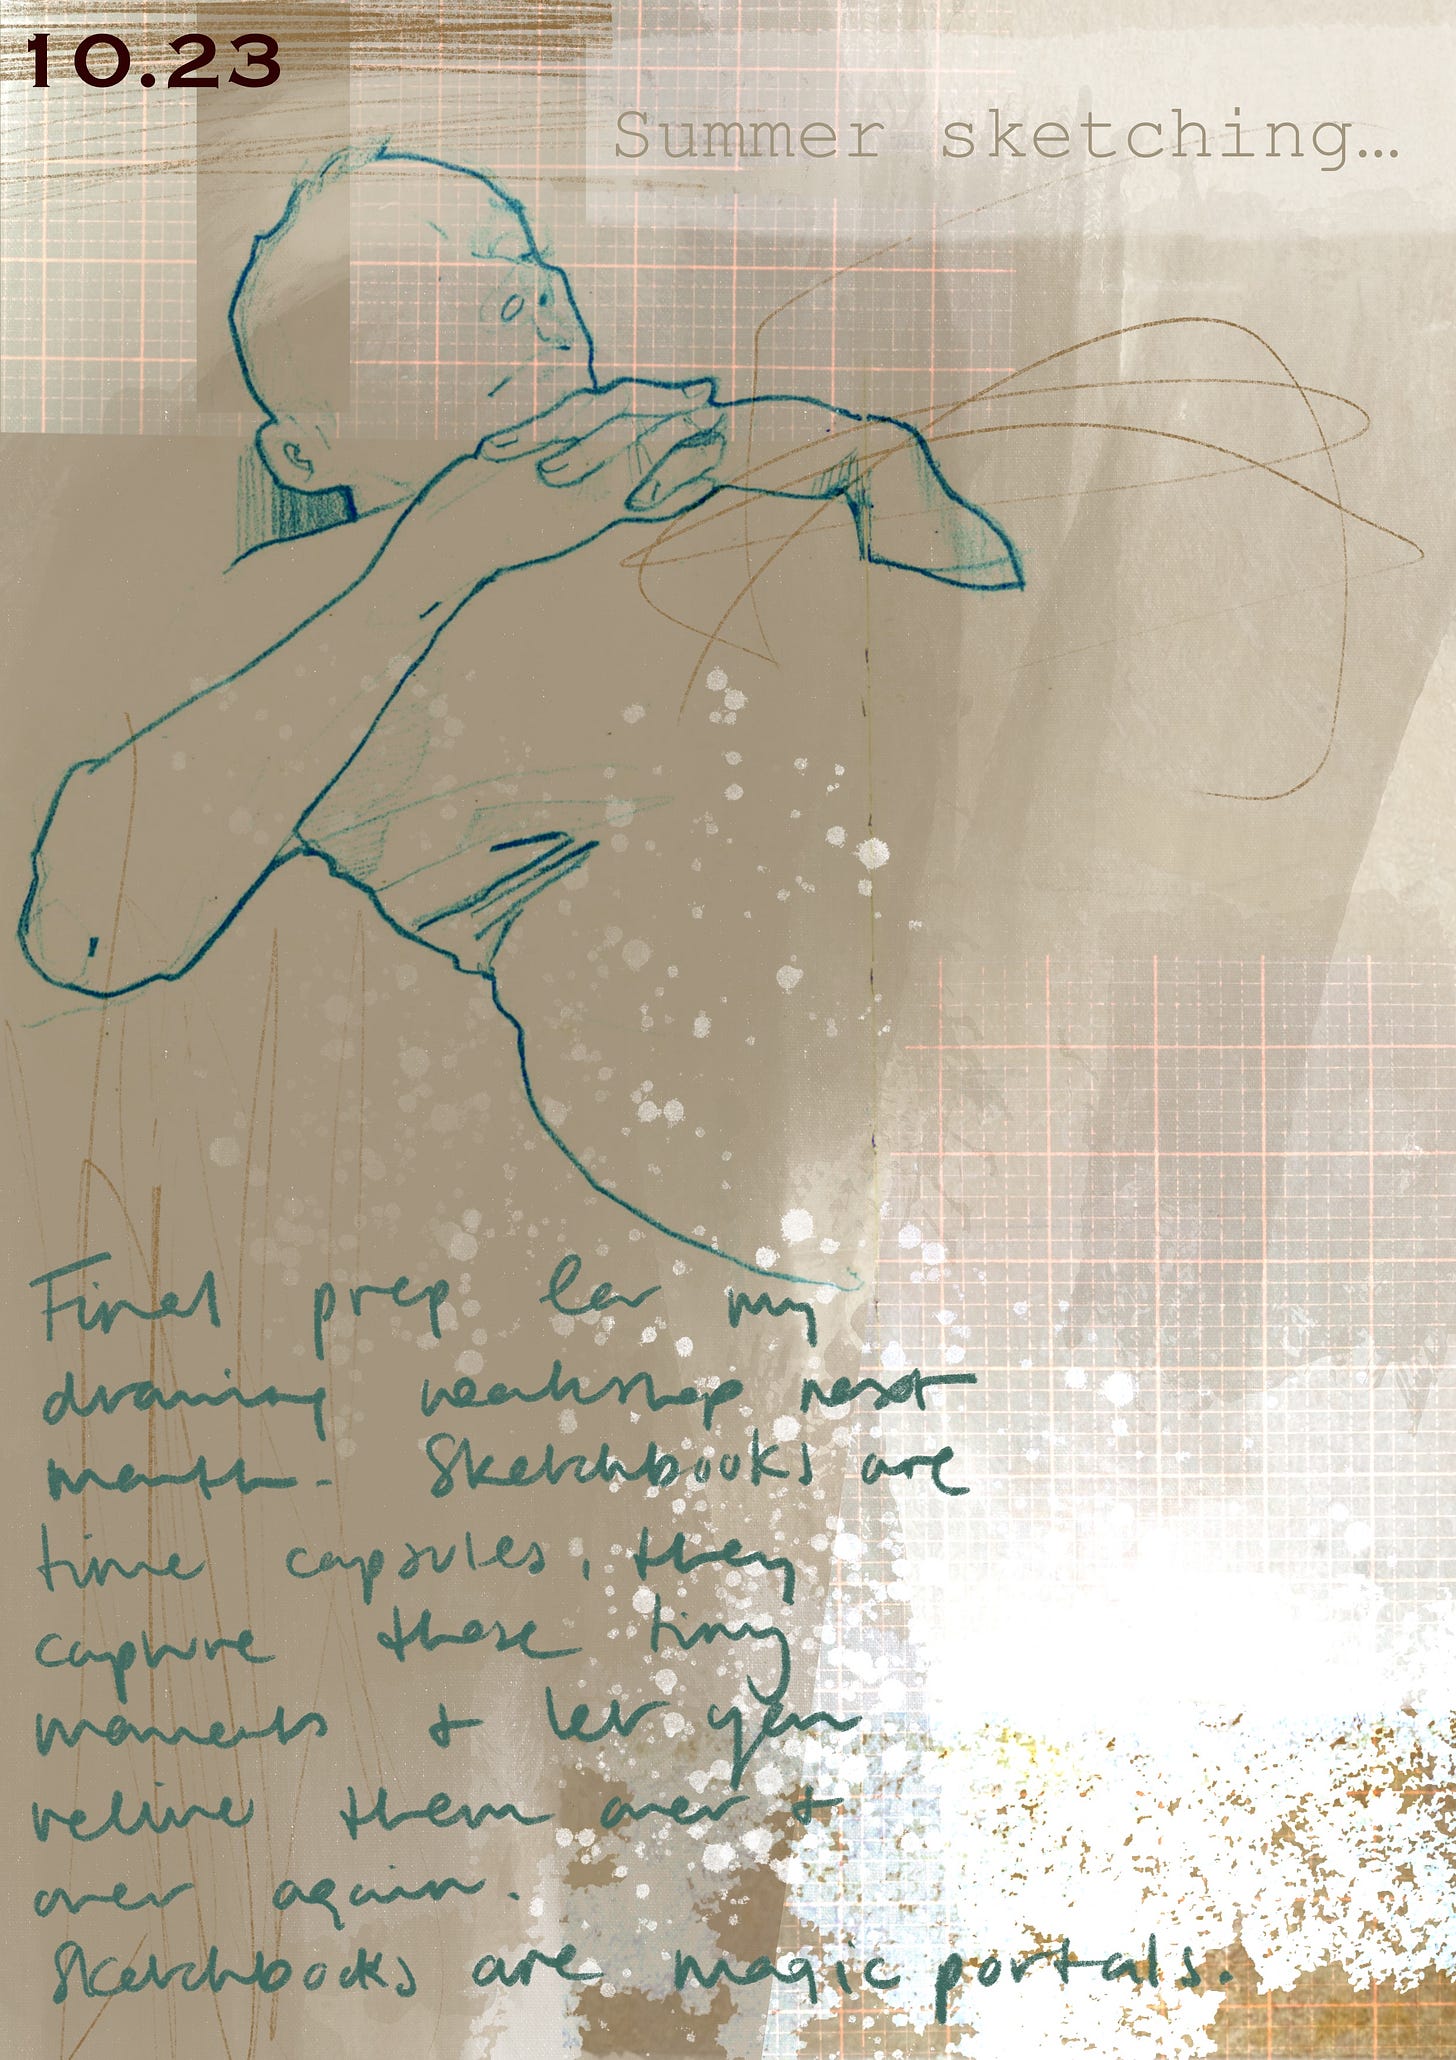 10.23
Summer sketching...
Final prep for my
drawing workshop next
month. Sketchbooks are
time capsules, they
capture these tiny
moments & let you
relive them over &
over again.
Sketchbooks are magic portals.